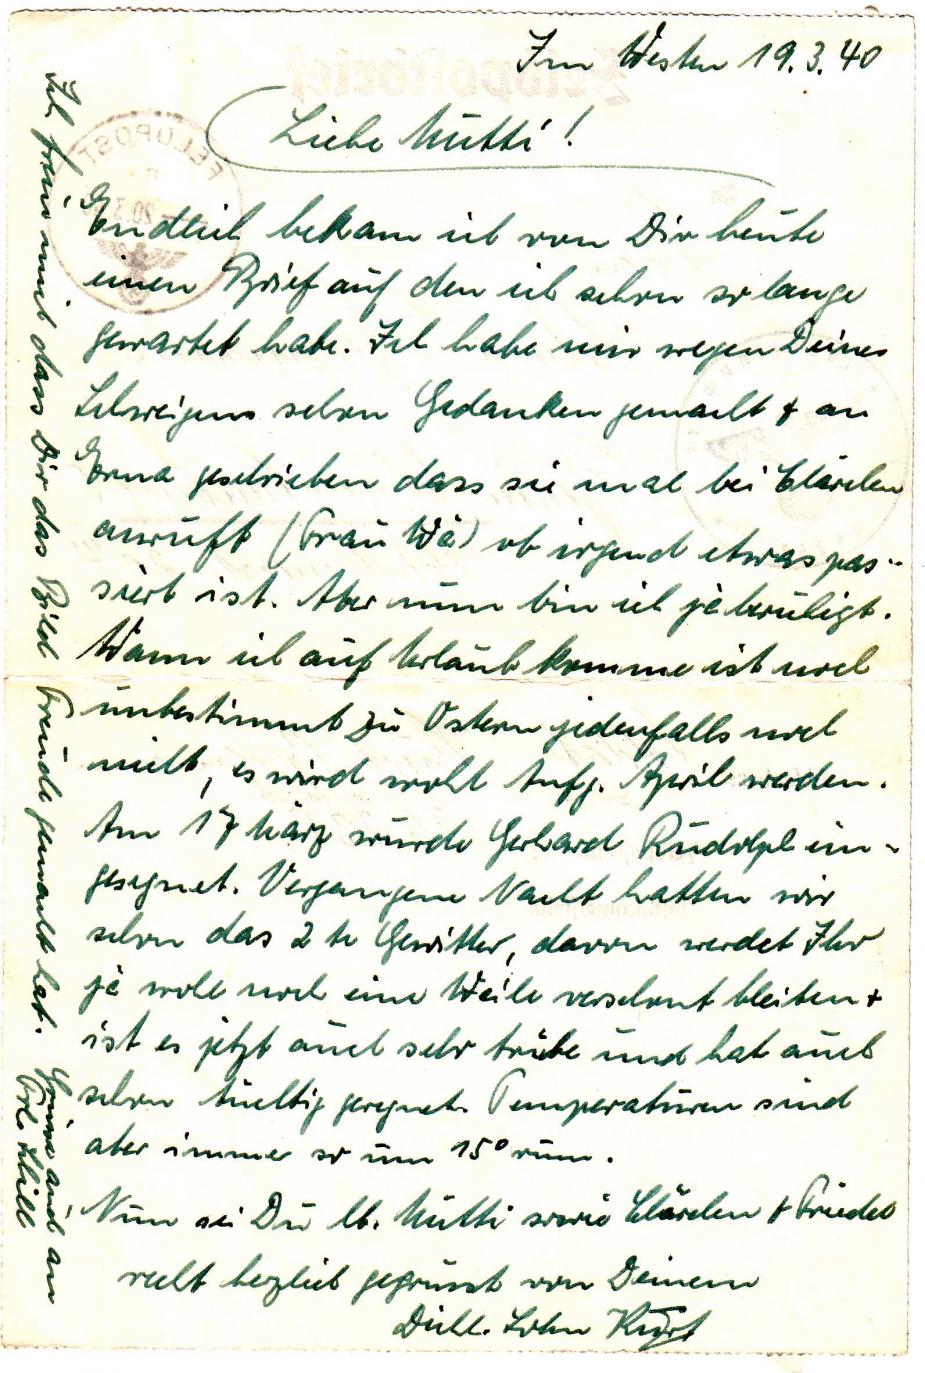 Im Westen 19.3.40
Liebe Mutti!
Endlich bekam ich von Dir heute
einen Brief auf den ich schon so lange
gewartet habe. Ich habe mir wegen Deines
Schweigens schon Gedanken gemacht + an
Erna geschrieben dass sie mal bei Clärchen
anruft (Frau Wä) ob irgend etwas pas-
siert ist. Aber nun bin ich ja beruhigt.
Wann ich auf Urlaub komme ist noch
unbestimmt zu Ostern jedenfalls noch
nicht, es wird wohl Anfg. April werden.
Am 17 März wurde Gerhard Rudolph ein-
gesegnet. Vergangene Nacht hatten wir
schon das 2 te Gewitter, davon werdet Ihr
ja wohl noch eine Weile verschont bleiben +
ist es jetzt auch sehr trübe und hat auch
schon tüchtig geregnet. Temperaturen sind
aber immer so um 15° rum.
Nun sei Du lb. Mutti sowie Clärchen + Friedel
recht herzlich gegrüsst von Deinem
Dichl. Sohn Kurt
Ich freue mich dass Dir das Bild Freude gemacht hat.
Grüsse auch an
Frl. Schill
FELDPOST
20.3.
Feldpostbrief